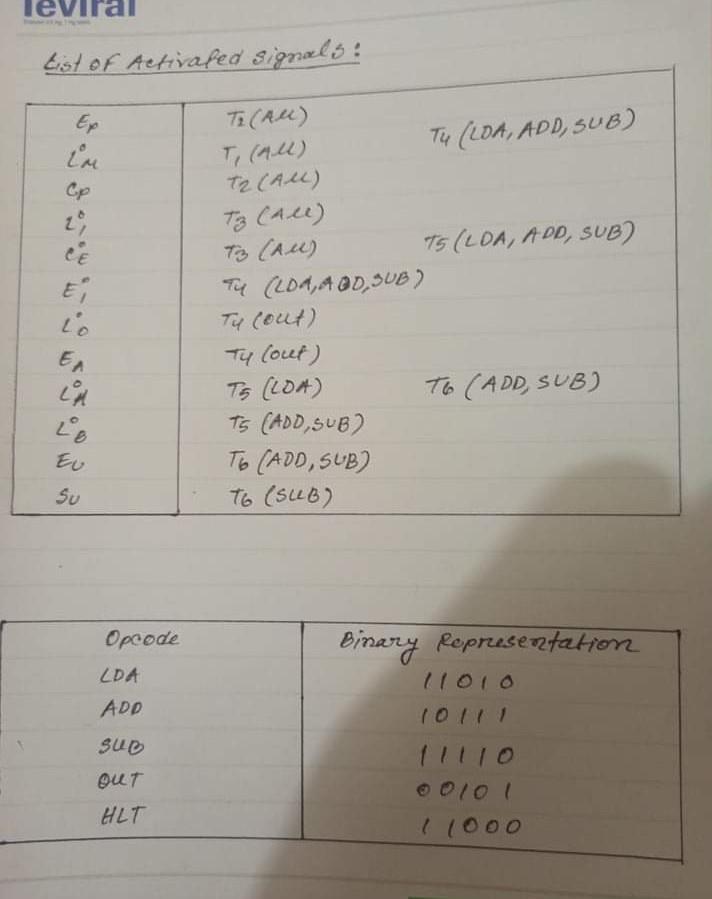 leviral
List of Activated signals:
Ep T2 (All) T4 (LDA, ADD, SUB)
L°M T1 (All)
Cp T2 (All)
L°I T3 (All)
C°E T3 (All) T5 (LDA, ADD, SUB)
E°I T4 (LDA, ADD, SUB)
L°O T4 (out)
EA T4 (out)
L°A T5 (LDA) T6 (ADD, SUB)
L°B T5 (ADD, SUB)
EU T6 (ADD, SUB)
SU T6 (SUB)
Opcode Binary Representation
LDA 11010
ADD 10111
SUB 11110
OUT 00101
HLT 11000